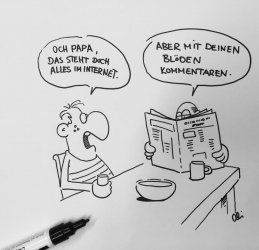 OCH PAPA,
DAS STEHT DOCH
ALLES IM INTERNET.
ABER MIT DEINEN
BLÖDEN
KOMMENTAREN.